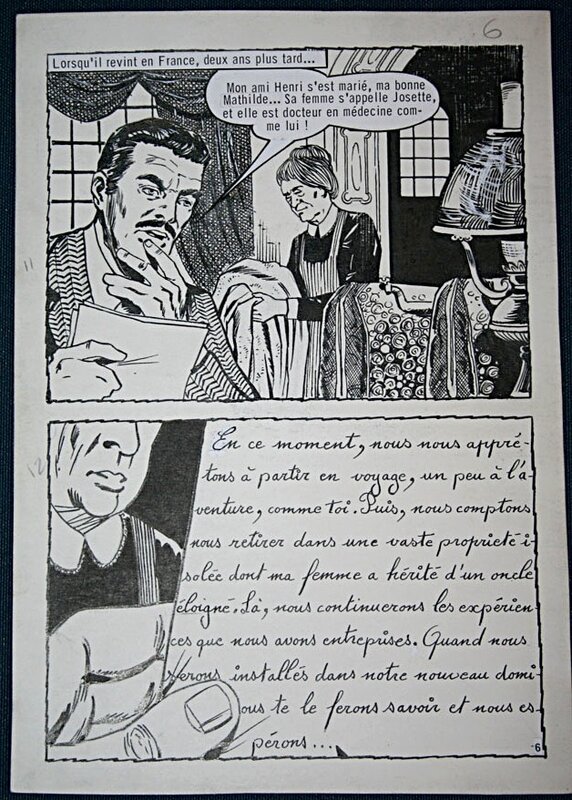 6
Lorsqu'il revint en France, deux ans plus tard...
Mon ami Henri s'est marié, ma bonne
Mathilde... Sa femme s'appelle Josette,
et elle est docteur en médecine com-
me lui !
11
12
En ce moment, nous nous apprê-
tons à partir en voyage, un peu à l'a-
venture, comme toi. Puis, nous comptons
nous retirer dans une vaste propriété i-
solée dont ma femme a hérité d'un oncle
éloigné. Là, nous continuerons les expérien-
ces que nous avons entreprises. Quand nous
serons installés dans notre nouveau domi
ous te le ferons savoir et nous es-
pérons...
-6